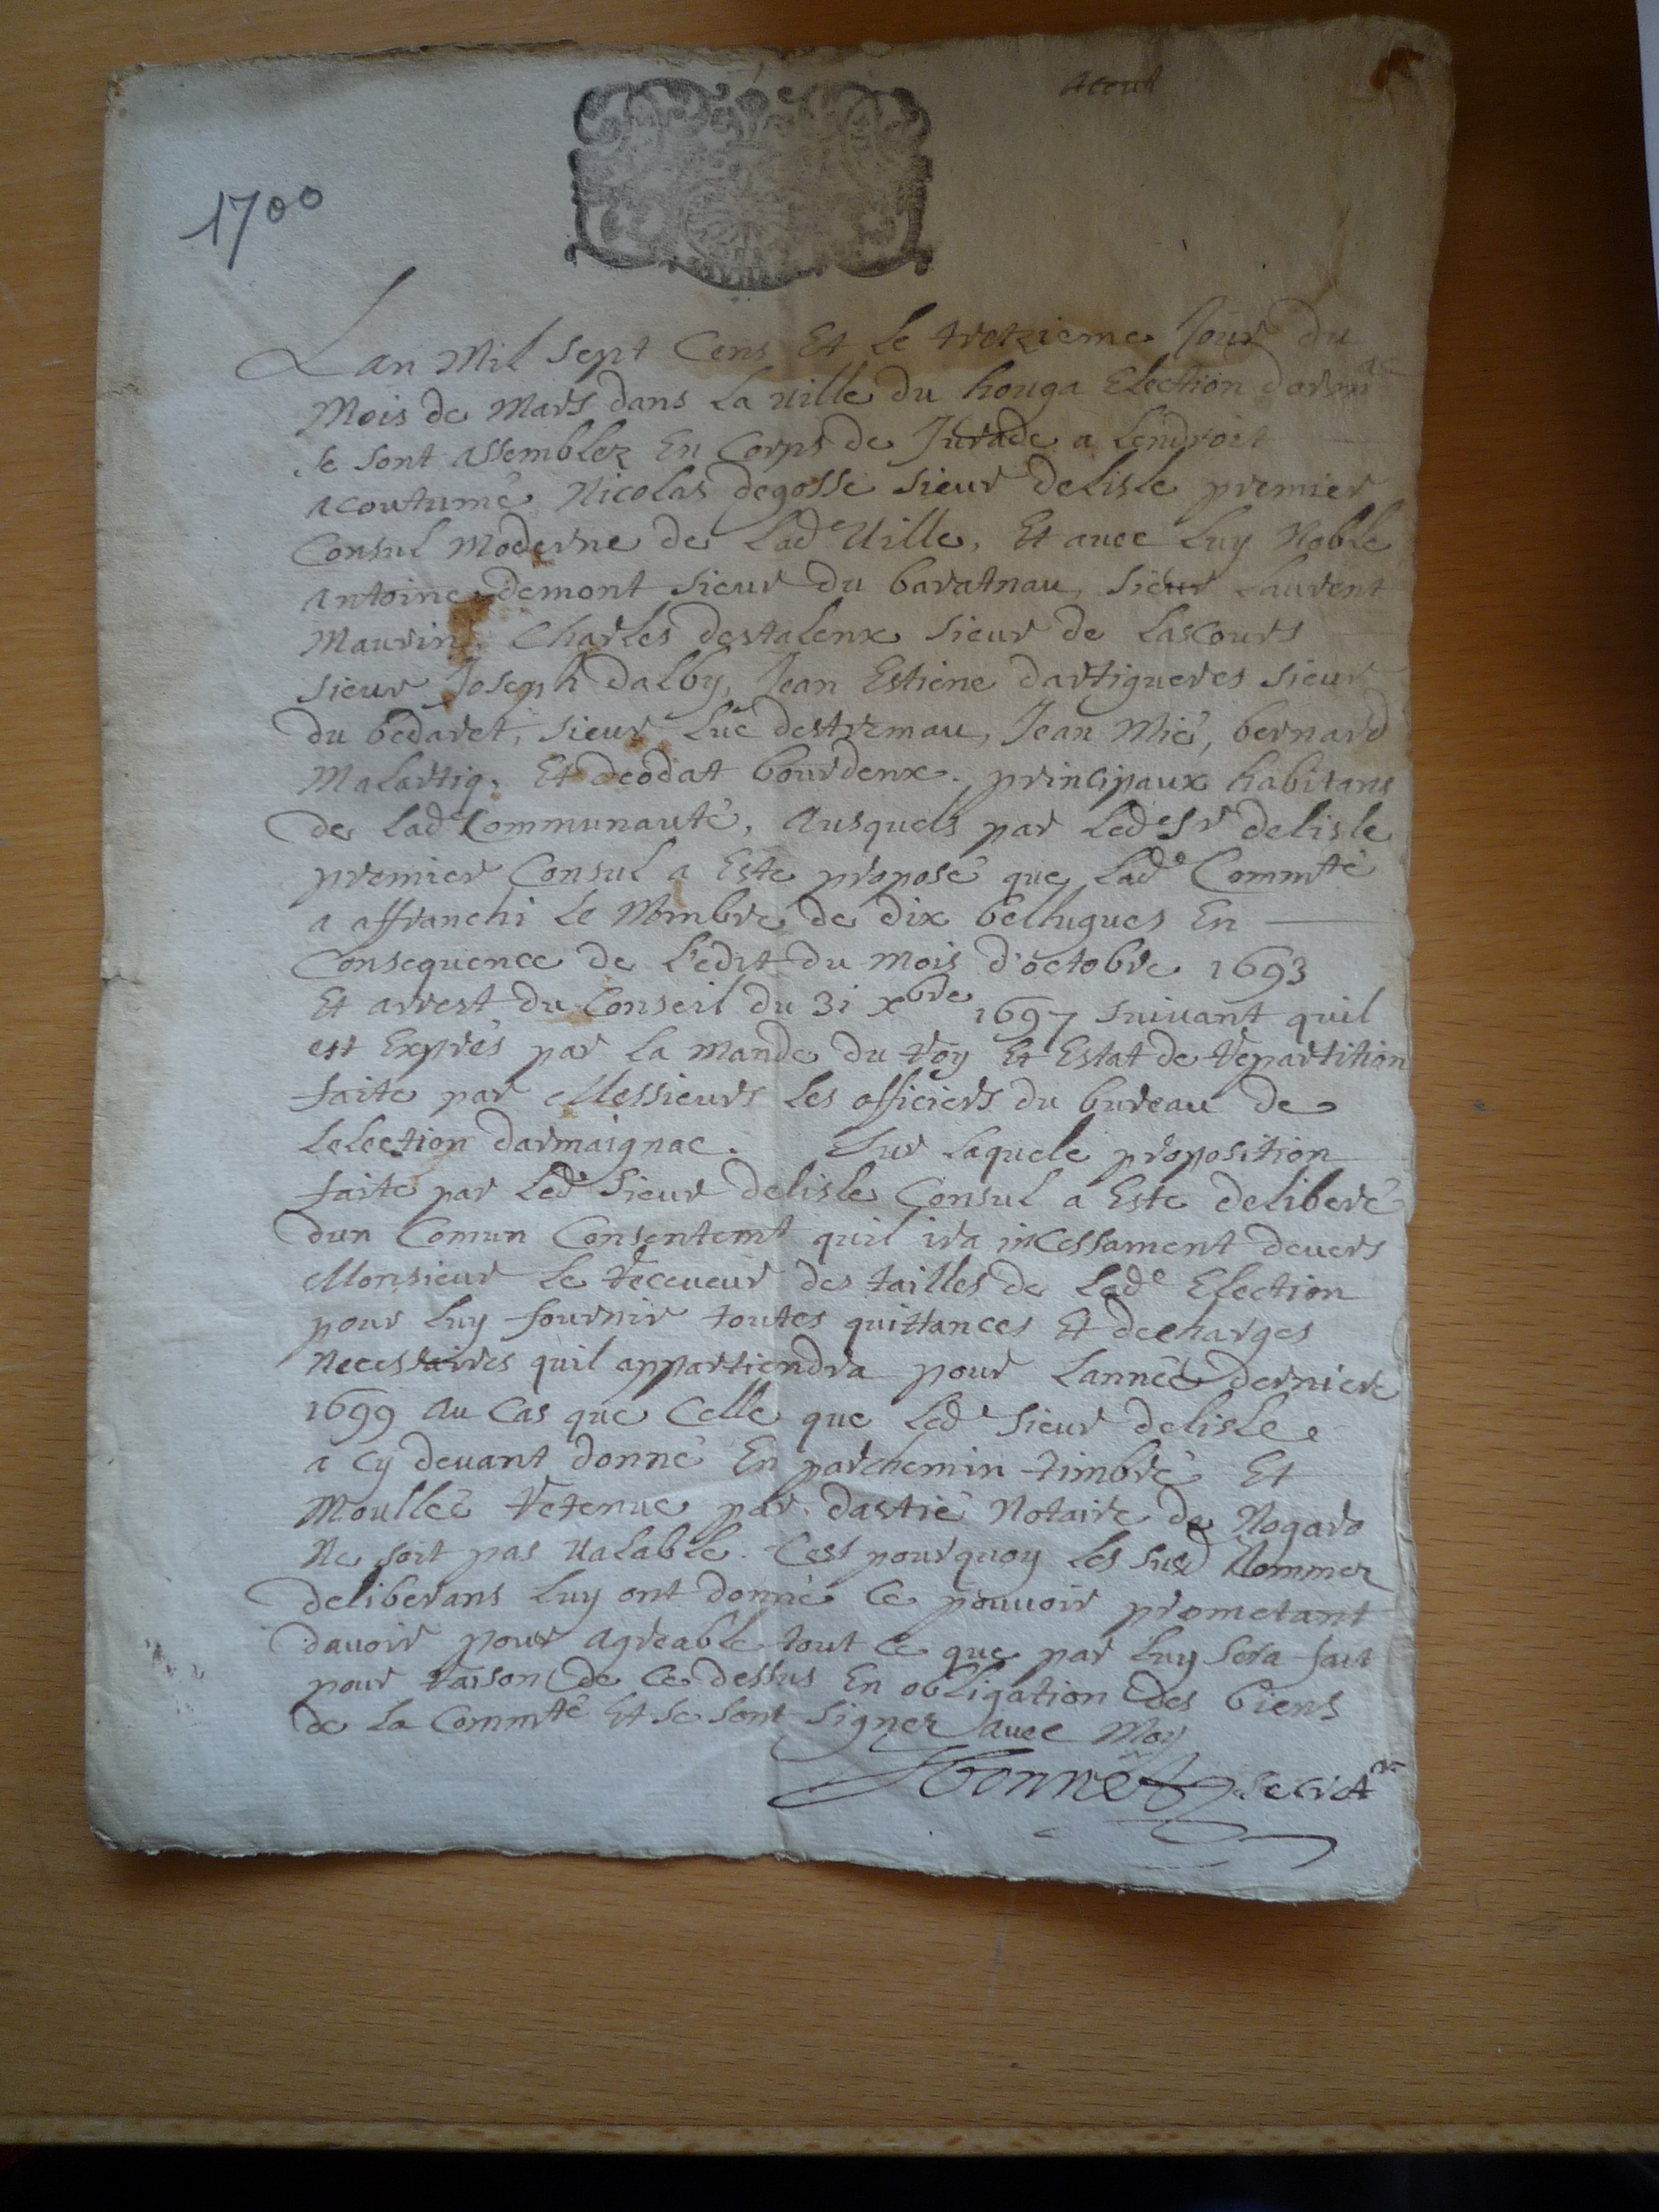 1700
Lan Mil sept Cens Et le tretzieme Jour du
Mois de Mars dans La uille du houga Election darm ac
se sont assemblez En Corps de Jurade a Lendroit
acoutumé Nicolas degosse sieur delisle premier
Consul moderne de Lade Uille, Et auec Luy Noble
Antoine demont sieur du baratnau, sieur Laurent
Maurin, Charles destalenx sieur de Lascours
sieur Joseph dalby, Jean Estiene dartigueres sieur
du bedaret, sieur Luc destremau, Jean Mié, bernard
Malartiq, Et deodat bourdenx, principaux habitans
de lade Communauté, Ausquels par Led sr delisle
premier Consul a Este proposé que Lade Commté
a affranchi Le Nombre de dix bellugues En
Consequence de L'edit du mois d'octobre 1693
Et arrest du Conseil du 31 xbre 1697 suiuant quil
est Expres par La mande du roy Et Estat de repartition
faite par Messieurs Les officiers du bureau de
Lelection darmaignac. Sur Laquele proposition
faite par Led sieur delisle Consul a Este deliberé
dun Comun Consentemt quil ira inCessament deuers
Monsieur Le receueur des tailles de Lade Election
pour Luy fournir toutes quittances Et decharges
Necessaires quil appartiendra pour Lannée derniere
1699 Au Cas que Celle que Led sieur delisle
a Cy deuant donné En parchemin timbré Et
Moullé retenue par dastié Notaire de Nogaro
Ne soit pas Ualable. Cest pourquoy Les susd Nommez
deliberans Luy ont donné Ce pouuoir prometant
dauoir pour Agreable tout Ce que par Luy sera fait
pour raison de Ce dessus En obligation des biens
de La Commté Et se sont signez auec Moy
bonnet secretr